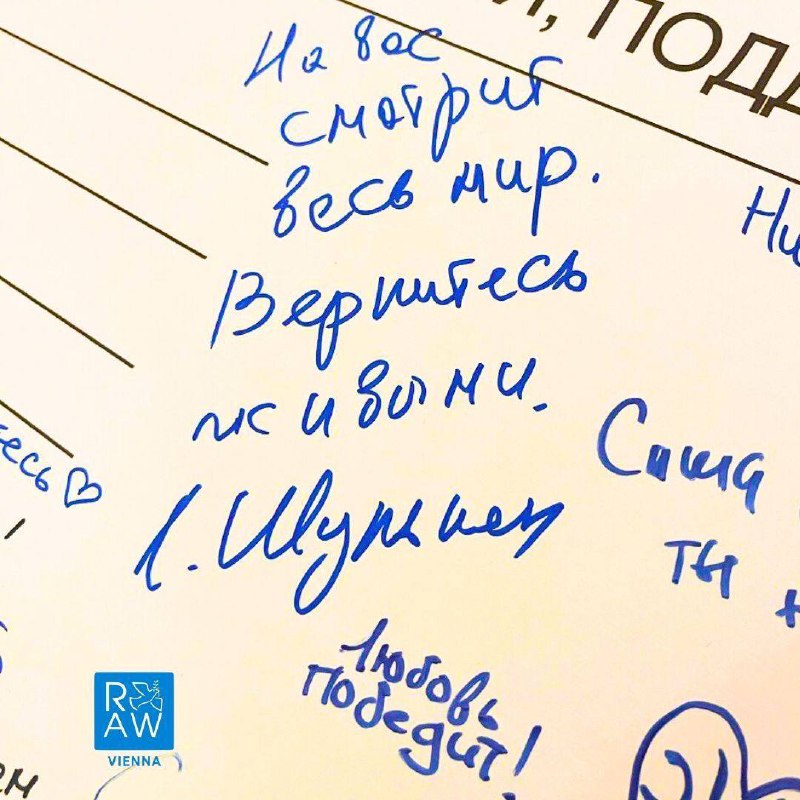 И, ПОДД
На вас
смотрит
весь мир.
Вернитесь
живыми.
Ни
Саша
ты н
есь♡
!
Любовь
победит!
RAW
VIENNA
ем